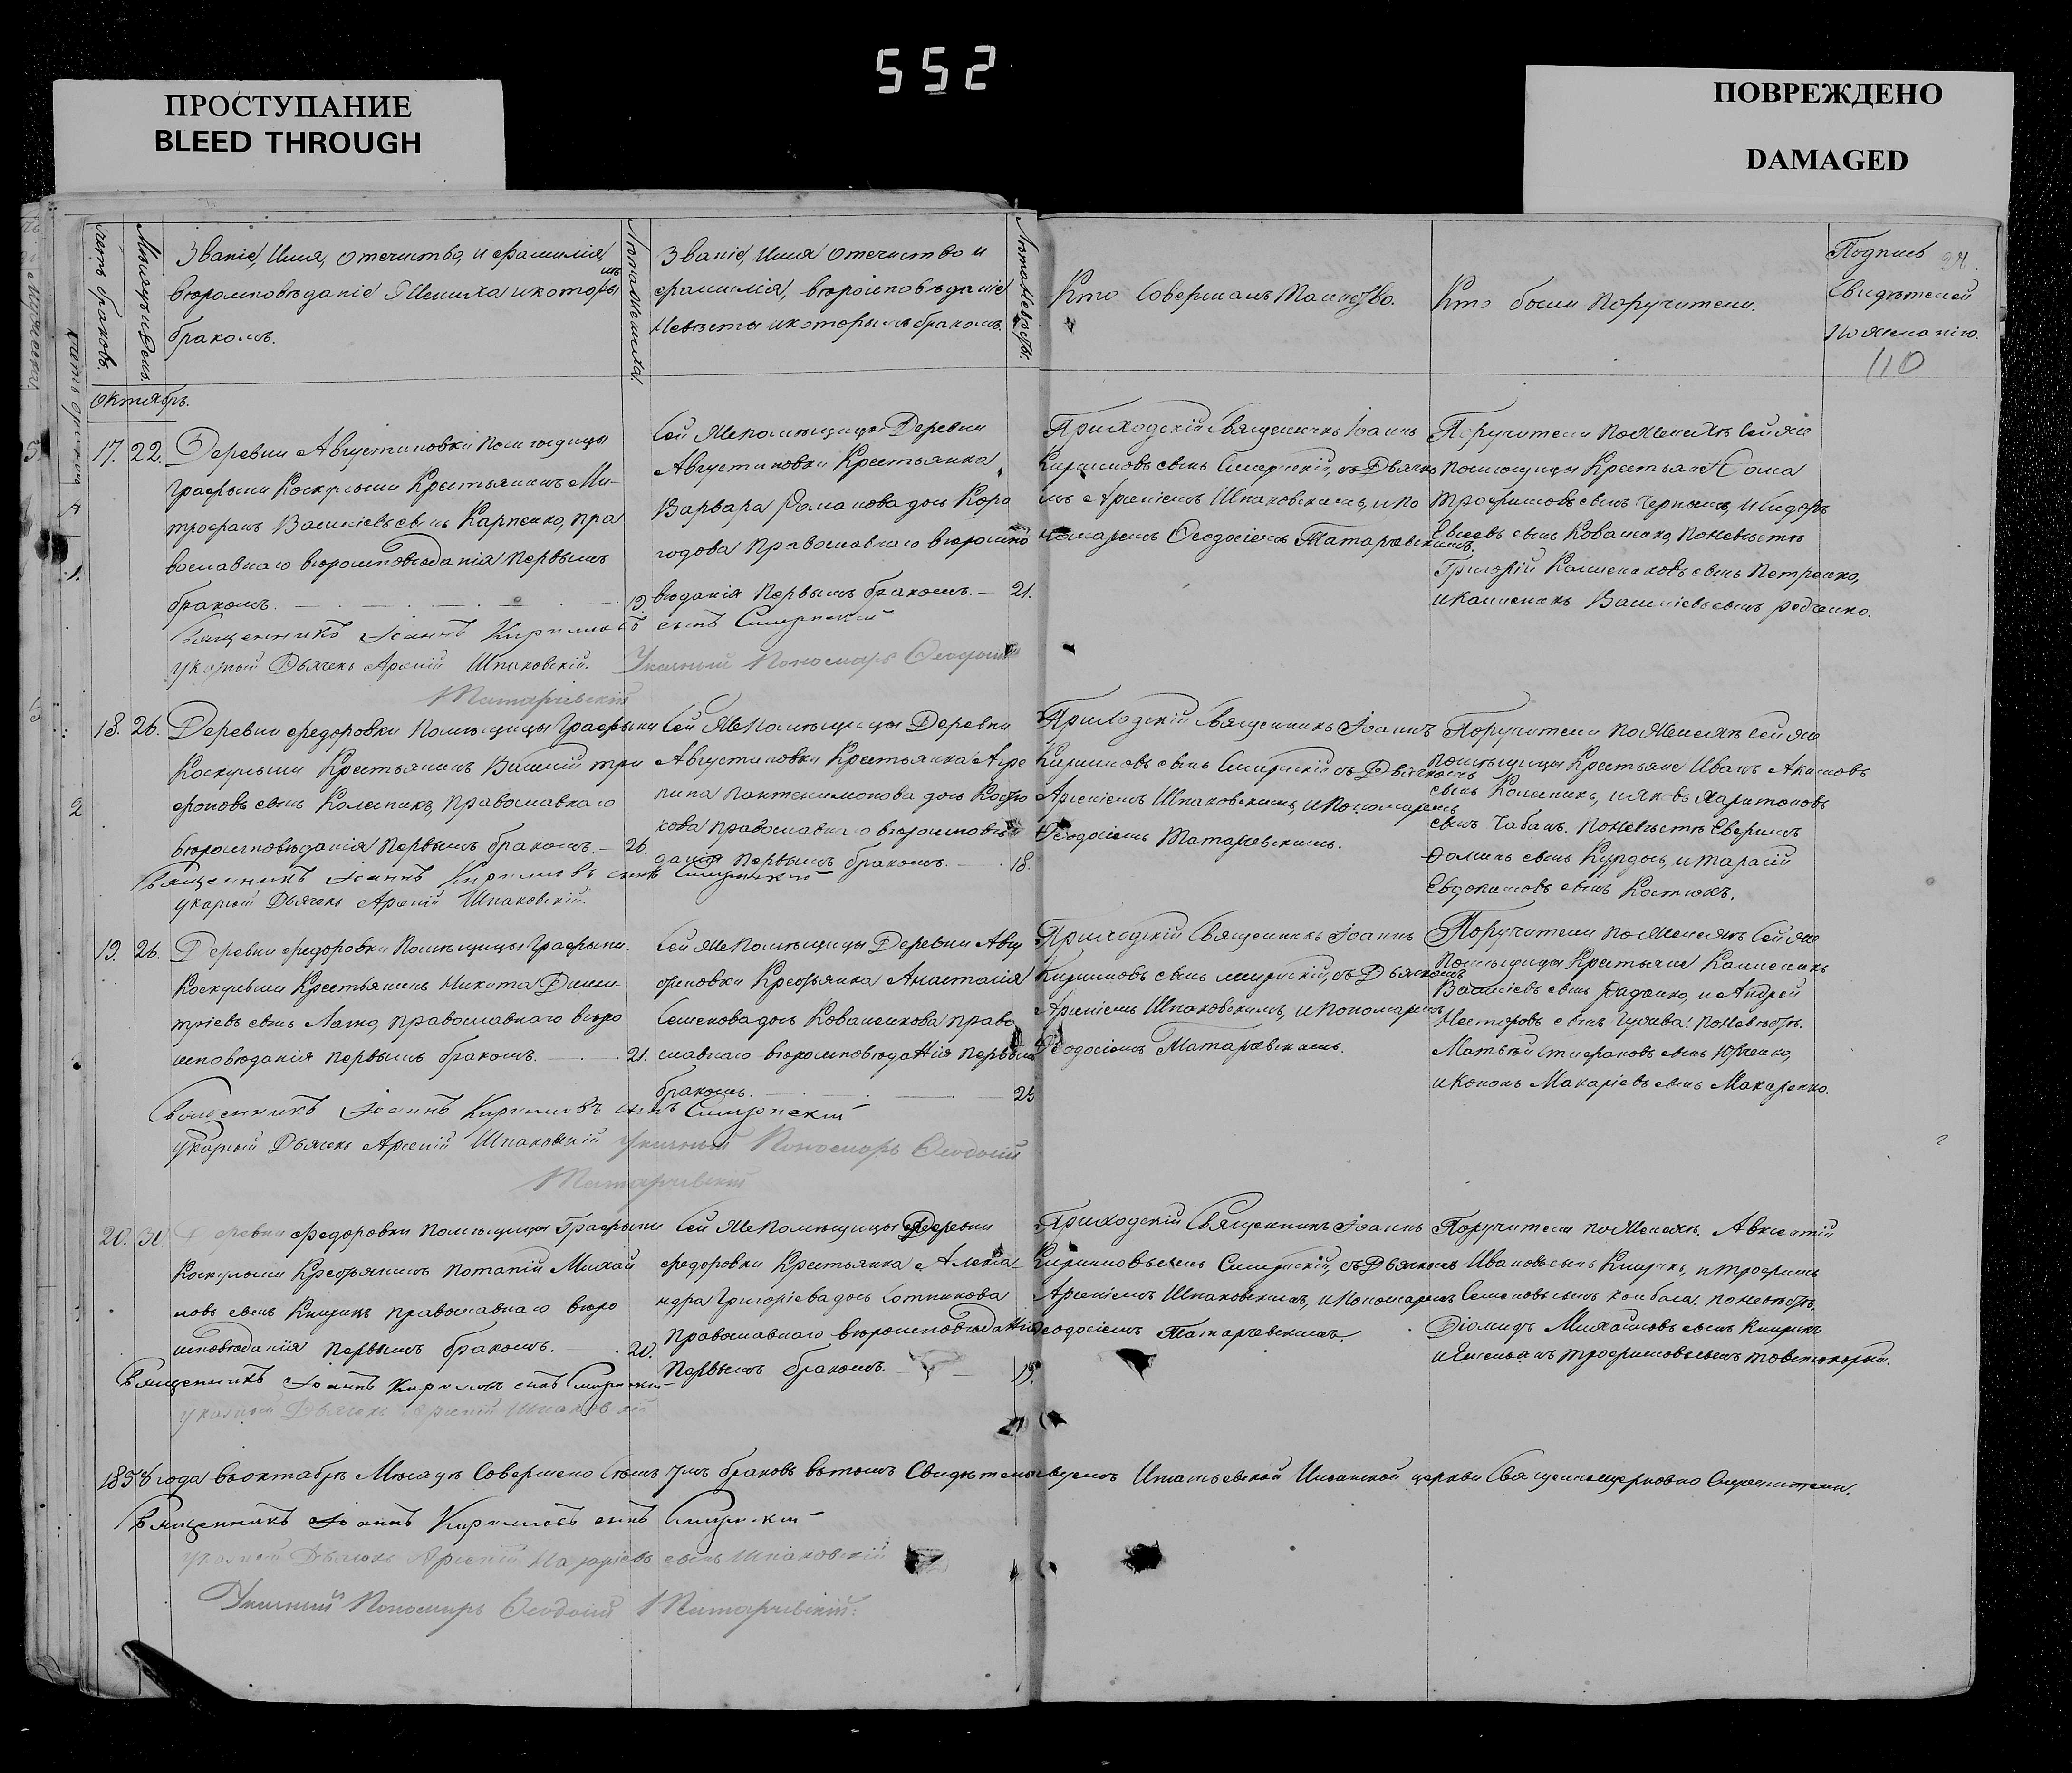 552
ПРОСТУПАНИЕ
BLEED THROUGH
ПОВРЕЖДЕНО
DAMAGED
счетъ браковъ.
Мѣсяцъ и День.
Званіе, Имя, отечиство, и фамилія,
вѣроисповѣданіе Жениха и которымъ
бракомъ.
Лѣта Жениха.
Званіе, Имя отечиство и
фамилія, вѣроисповѣданіе
Невѣсты и которымъ бракомъ.
Лѣта Невѣсты.
Кто Совершалъ Таинство.
Кто были Поручители.
Подпись
Свидѣтелей
по желанію.
110
Октябрь.
17. 22. Деревни Августиновки Помѣщицы
Графыни Коскулыи Крестьянинъ Ми-
трофанъ Василіевъ сынъ Карпенко, пра
вославнаго вѣроисповѣданія первымъ
бракомъ. 19.
Сей же Помѣщицы Деревни
Августиновки Крестьянка
Варвара Романова дочь Коро
годова Православнаго вѣроиспо
вѣданія первымъ бракомъ. 21.
Приходскій Священникъ Іоаннъ
Кириловъ сынъ Смирнскій, съ Дьячко
мъ Арсеніемъ Шпаковскимъ, и по
номаремъ Ѳеодосіемъ Татаревскимъ.
Поручители по Женихѣ Сей же
помѣщицы Крестьяне Ѳома
Трофимовъ сынъ Черномъ, и Сидоръ
Евсеевъ сынъ Коваленко, по Невѣстѣ
Григорій Калениковъ сынъ Петренко,
и Каленикъ Василіевъ сынъ Редченко.
Священникъ Іоаннъ Кириловъ сынъ Смирнскій
указный Дьячекъ Арсеній Шпаковскій. Указный Пономарь Ѳеодосій
Татаревскій
18. 26. Деревни Федоровки Помѣщицы Графыни
Коскулыи Крестьянинъ Василій Три
фоновъ сынъ Колесникъ, православнаго
вѣроисповѣданія первымъ бракомъ. 26.
Сей же Помѣщицы Деревни
Августиновки Крестьянка Агре
пина Пантелимонова дочь Костю
кова православнаго вѣроисповѣ
данія первымъ бракомъ. 18.
Приходскій Священникъ Іоаннъ
Кириловъ сынъ Смирнскій съ Дьячкомъ
Арсеніемъ Шпаковскимъ, и Пономаремъ
Ѳеодосіемъ Татаревскимъ.
Поручители по Женихѣ Сей же
помѣщицы Крестьяне Иванъ Акимовъ
сынъ Колесникъ, и Яковъ Харитоновъ
сынъ Чабанъ. По Невѣстѣ Севериянъ
Фоминъ сынъ Курдось, и Тарасій
Евдокимовъ сынъ Костюкъ.
Священникъ Іоаннъ Кириловъ сынъ Смирнскій
указный Дьячекъ Арсеній Шпаковскій.
19. 26. Деревни Федоровки Помѣщицы Графыни
Коскулыи Крестьянинъ Никита Дими-
тріевъ сынъ Лагно, православнаго вѣро
исповѣданія первымъ бракомъ. 21.
Сей же Помѣщицы Деревни Авгу
стиновки Крестьянка Анастасія
Семенова дочь Коваленкова право
славнаго вѣроисповѣданія первымъ
бракомъ.
Приходскій Священникъ Іоаннъ
Кириловъ сынъ Смирнскій, съ Дьячкомъ
Арсеніемъ Шпаковскимъ, и Пономаремъ
Ѳеодосіемъ Татаревскимъ.
Поручители по Женихѣ Сей же
Помѣщицы Крестьяне Каленикъ
Василіевъ сынъ Радченко, и Андрей
Несторовъ сынъ по Невѣстѣ.
Матвѣй Стефановъ сынъ Юрченко,
и Кононъ Макаріевъ сынъ Макаренко.
Священникъ Іоаннъ Кириловъ сынъ Смирнскій
указный Дьячекъ Арсеній Шпаковскій Указный Пономарь Ѳеодосій
Татаревскій
20. 31. Деревни Федоровки Помѣщицы Графыни
Коскулыи Крестьянинъ Потапій Михай
ловъ сынъ Кнырикъ православнаго вѣро
исповѣданія первымъ бракомъ. 20.
Сей же Помѣщицы Деревни
Федоровки Крестьянка Алекса-
ндра Григоріева дочь Сотникова
Православнаго вѣроисповѣданія
Первымъ бракомъ. 19.
Приходскій Священникъ Іоаннъ
Кириловъ сынъ Смирнскій, съ Дьячкомъ
Арсеніемъ Шпаковскимъ, и Пономаремъ
Ѳеодосіемъ Татаревскимъ.
Поручители по Женихѣ. Авксентій
Ивановъ сынъ Кнырикъ, и Трофимъ
Семеновъ сынъ Ковбаса. по Невѣстѣ.
Діомидъ Михайловъ сынъ Кнырикъ
и Емельянъ Трофимовъ сынъ
Священникъ Іоаннъ Кириловъ сынъ Смирнскій
указный Дьячекъ Арсеній Шпаковскій
1858 года въ октябрѣ Мѣсяцѣ Совершено Семь 7мъ браковъ въ томъ Свидѣтельствуемъ Игнатьевской Ильинской церкви Священноцерковно Служители.
Священникъ Іоаннъ Кириловъ сынъ Смирнскій
указный Дьячекъ Арсеній Назаріевъ сынъ Шпаковскій
Указный Пономарь Ѳеодосій Татаревскій.